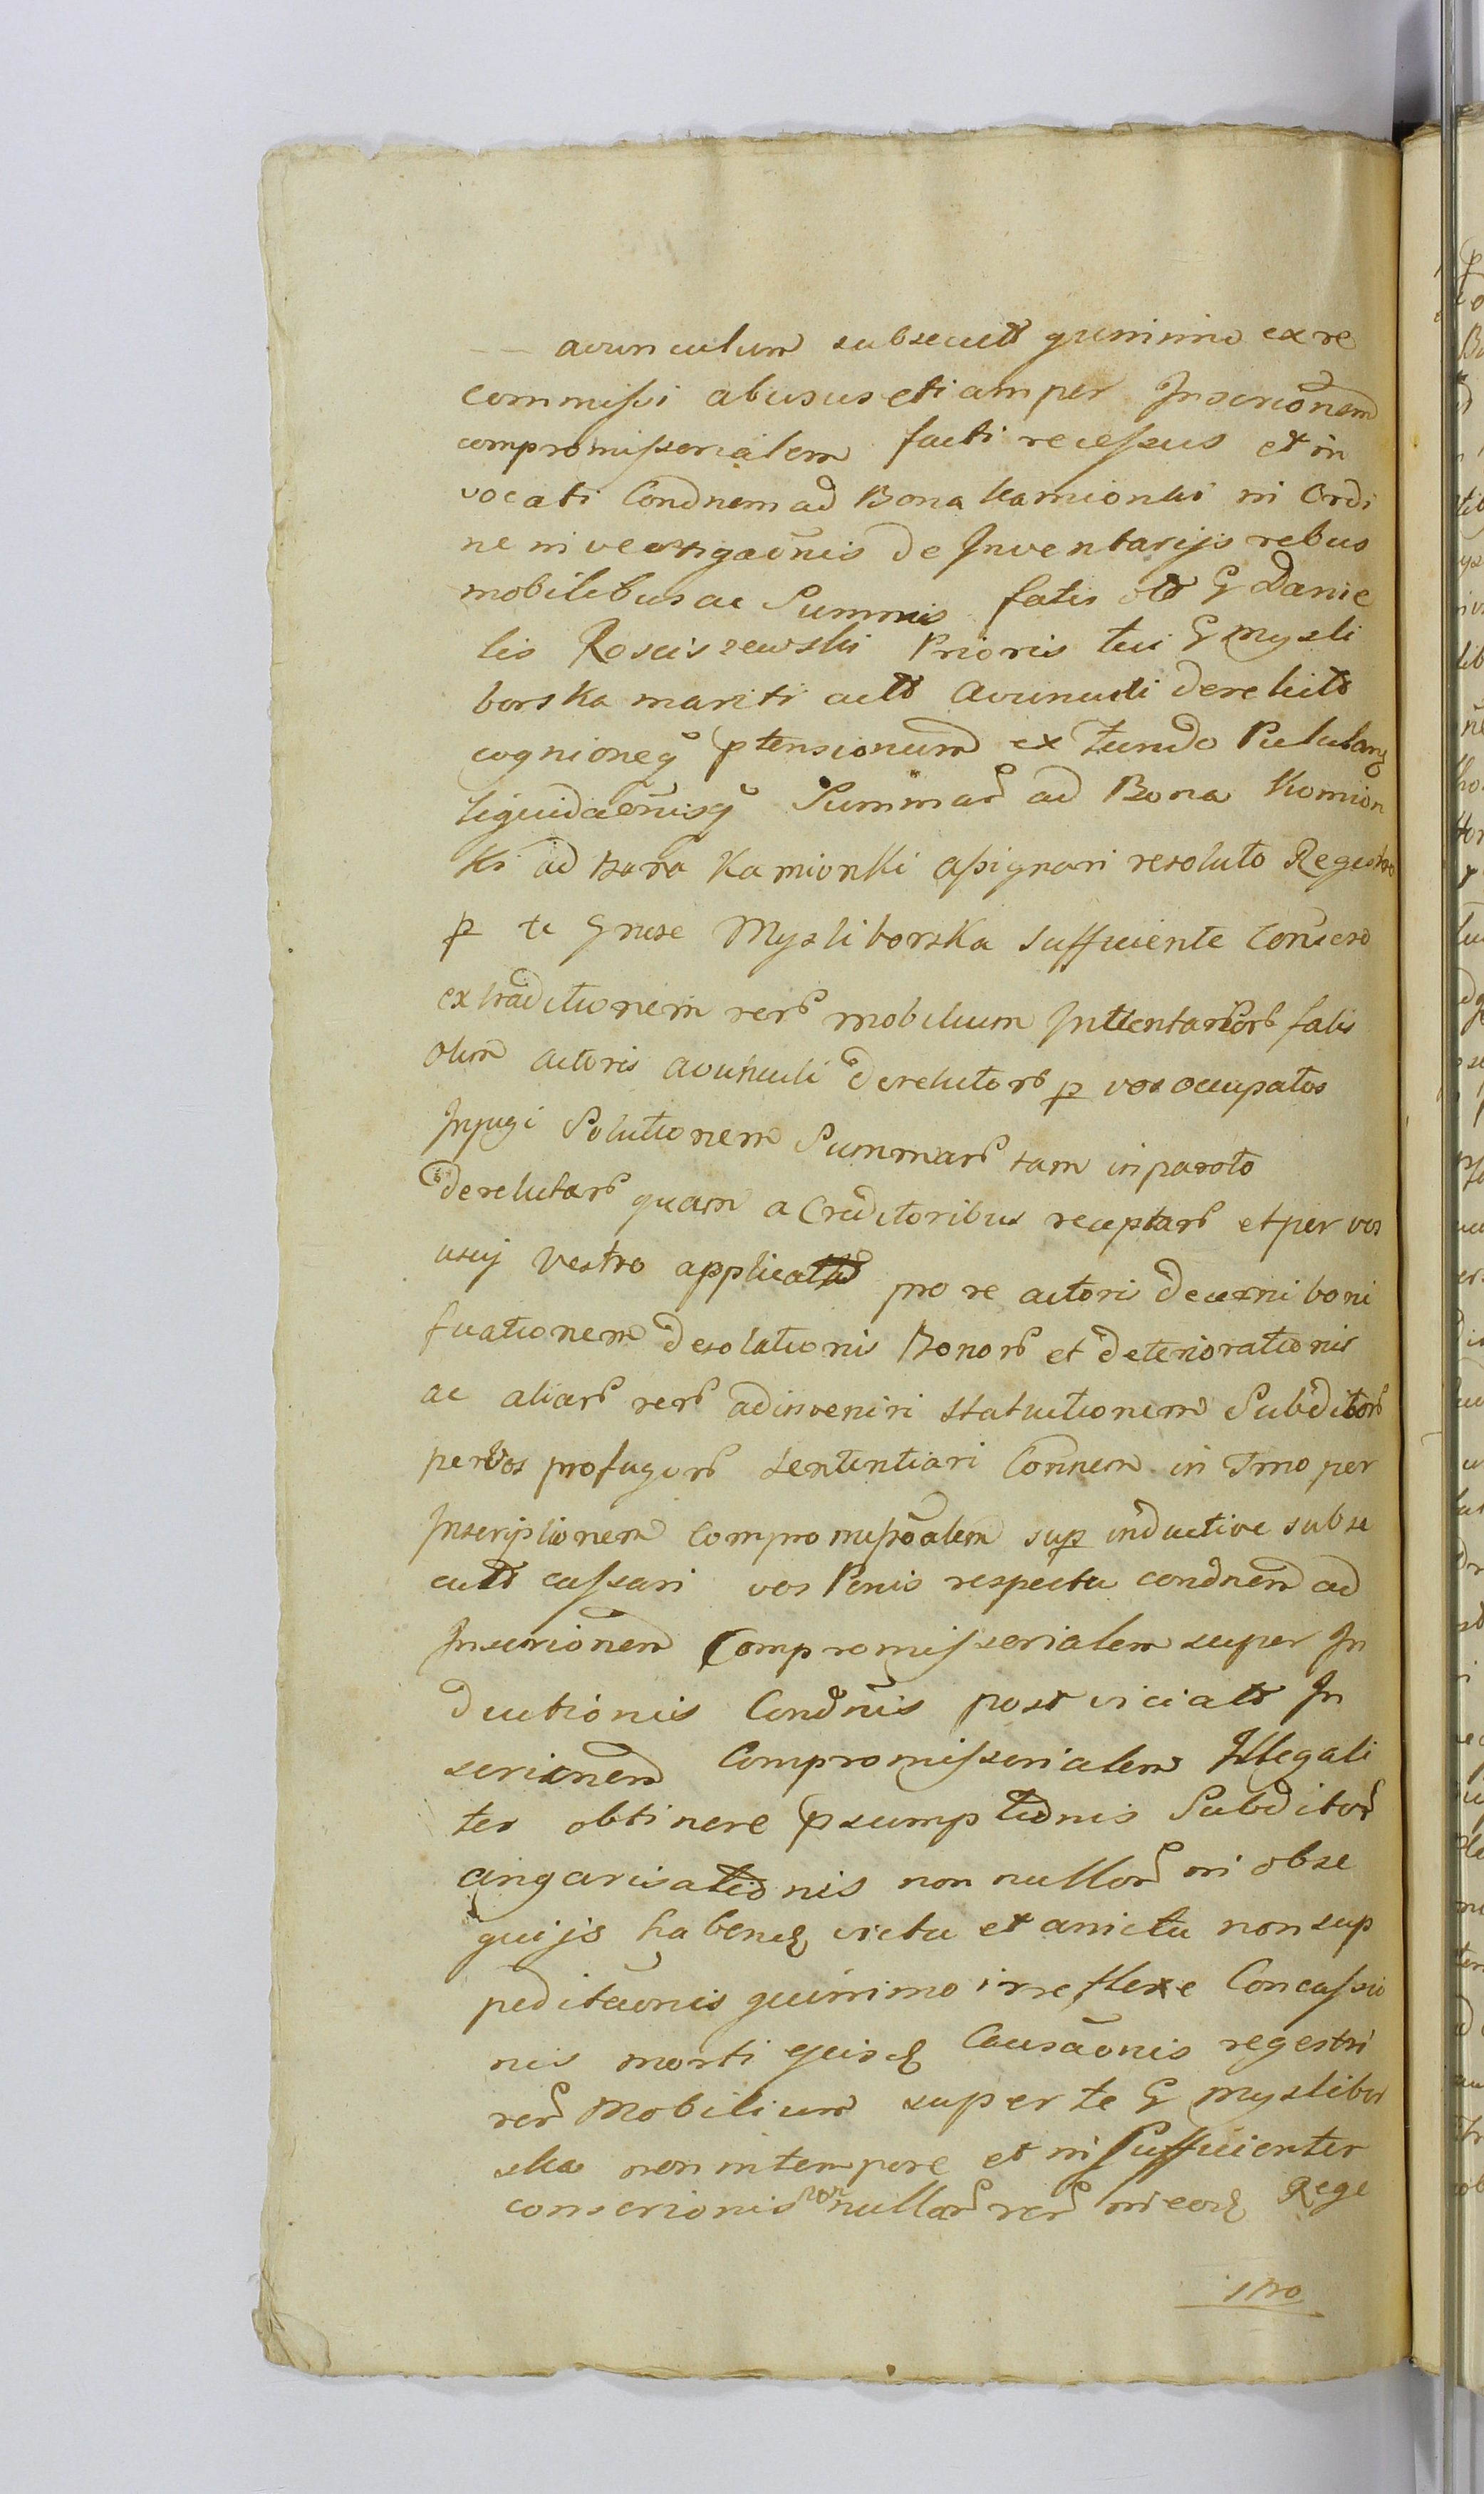 avunculum subsecutt quinimo ex re
commissi abusus etiam per Inscrionem
compromissorialem facti recessus et in
vocati Condnem ad Bona Kamionki in Ordi
ne investigaonis de Inventarijs rebus
mobilibus ac Summis fatis olt G Danie
lis Rosciszewski Prioris tui G Mysli
borska mariti actt avunculi derelict
cognioneq ptensionum ex Fundo Pululang
liquidaonisq Summar ad Bona Kamion
ki ad Bona Kamionki assignari resoluto Regestro
p te Gnese Mysliborska sufficiente Conscro
extraditionem rerb mobilium Inventariorb fatis
olim actoris avunculi derelictorb p vos occupatos
Injugi Solutionem Summarb tam in parato
derelictarb quam a Creditoribus receptarb et per vos
usuj vestro applicatt pro re actoris decerni boni
ficationem desolationis Bonorb et deteriorationis
ac aliarb rerb adinveniri statuitionem Subditorb
per vos profugorb sententiari Connem in Tmo per
Inscriptionem Compromissoalem sup inductive subse
cutt cassari vos Penis respectu condnem ad
Inscrionem Compromissorialem super In
ductionis Condnis post viciatt In
scrionem Compromissorialem Illegali
ter obtinere psumptionis Subditor
angarisationis non nullor in obse
quijs habend victu et amictu non sup
peditaonis quinimo irreflexe Concussio
nis morti ejusd Causaonis regestri
rer Mobilium super te G Myslibor
ska non in tempore et insufficienter
conscrionis non nullar rer in eod Rege
stro